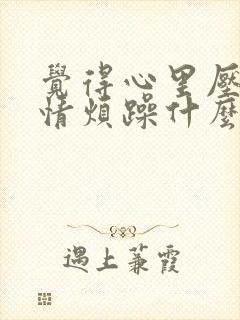 覺得心里壓
情煩躁什麼
遇上蒹霞